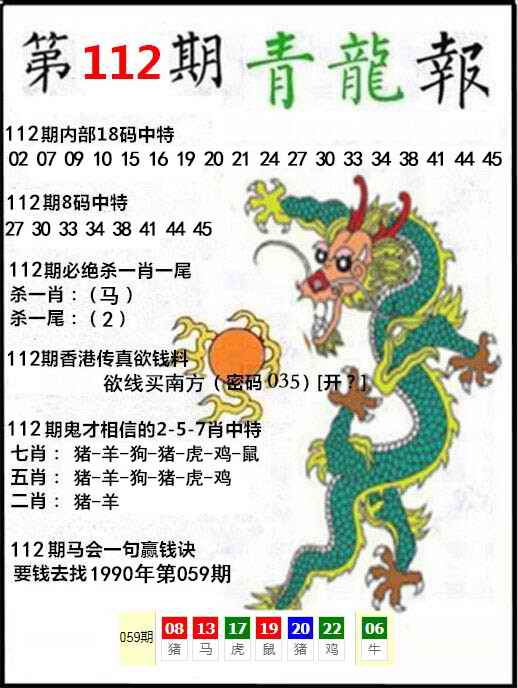 第112期青龍報
112期内部18码中特
02 07 09 10 15 16 19 20 21 24 27 30 33 34 38 41 44 45
112期8码中特
27 30 33 34 38 41 44 45
112期必绝杀一肖一尾
杀一肖：（马）
杀一尾：（2）
112期香港传真欲钱料
欲线买南方（密码035）[开？]
112期鬼才相信的2-5-7肖中特
七肖： 猪-羊-狗-猪-虎-鸡-鼠
五肖： 猪-羊-狗-猪-虎-鸡
二肖： 猪-羊
112期马会一句赢钱诀
要钱去找1990年第059期
059期 08 13 17 19 20 22 06
猪 马 虎 鼠 猪 鸡 牛